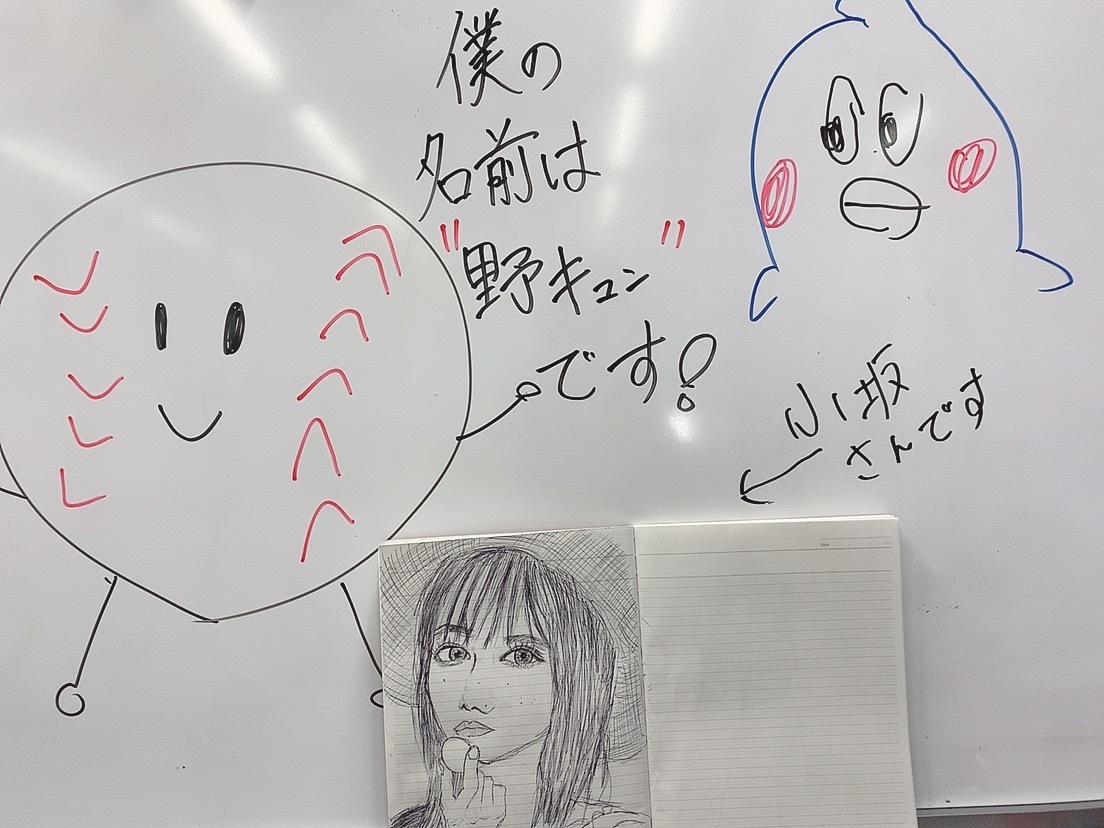 僕の
名前は
"野キュン"
です!
小坂
さんです
Date